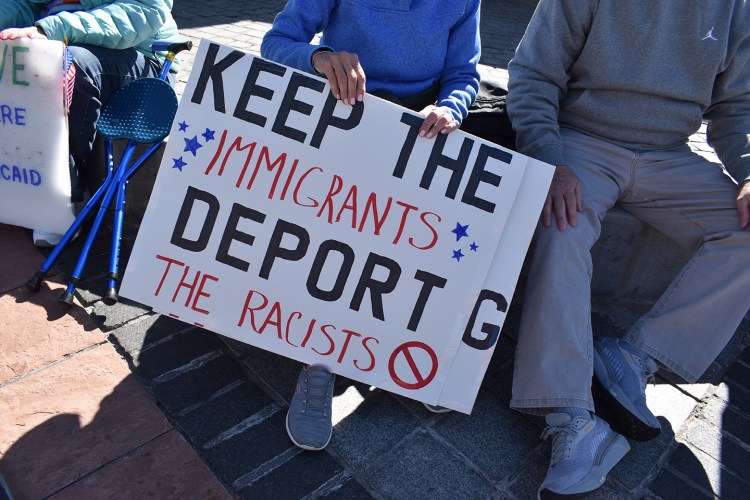 VE
RE
CAID
KEEP THE
IMMIGRANTS
DEPORT G
THE RACISTS